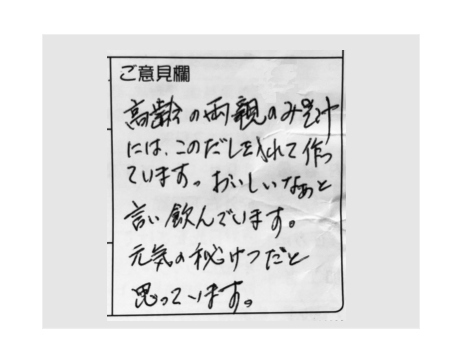 ご意見欄
高齢の両親のみそ汁
には、このだしを入れて作っ
ています。おいしいなぁと
言い飲んでいます。
元気の秘けつだと
思っています。